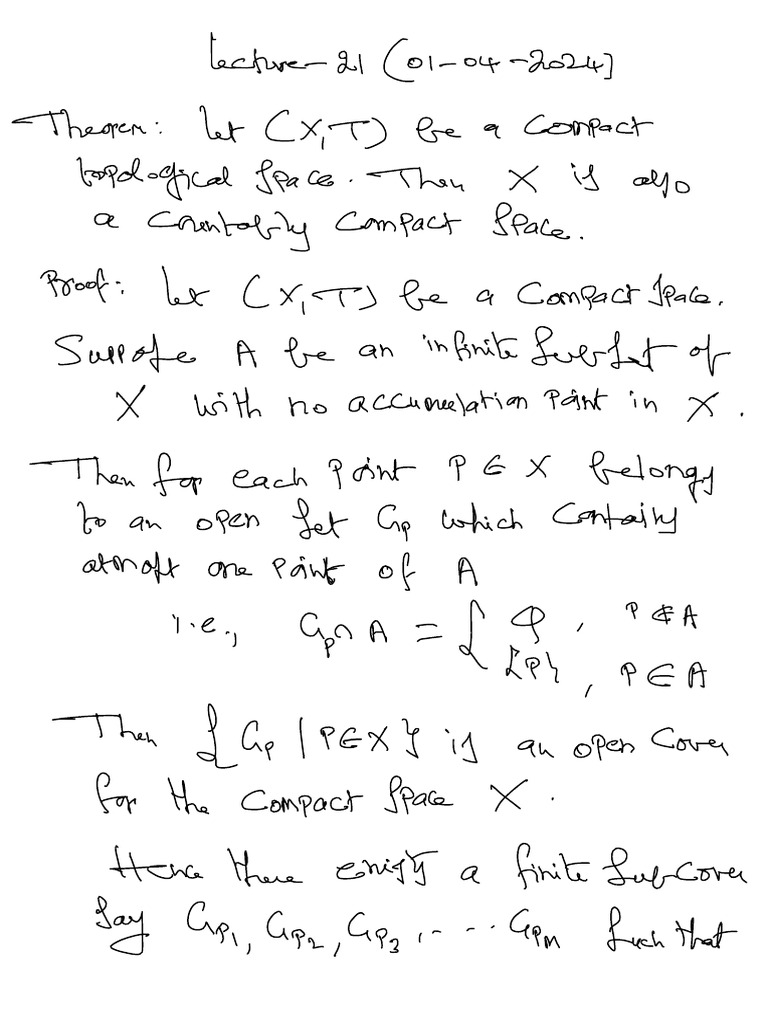 Lecture-21 (01-04-2024]
Theorem: Let (X,T) be a compact
topological space. Then X is also
a countably compact space.
Proof: Let (X,T) be a compact space.
Suppose A be an infinite subset of
X with no accumulation point in X.
Then for each point P ∈ X belongs
to an open set Gp which contains
atmost one point of A
i.e., Gp∩A = { φ, P∉A
{P}, P∈A
Then {Gp | P∈X} is an open cover
for the compact space X.
Hence there exists a finite subcover
say Gp₁, Gp₂, Gp₃, .... Gpₘ such that